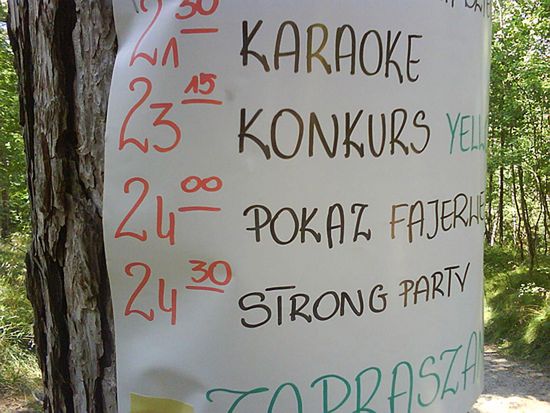 21 30 KARAOKE
23 15 KONKURS YELL
24 00 POKAZ FAJERWE
24 30 STRONG PARTY
ZAPRASZAM